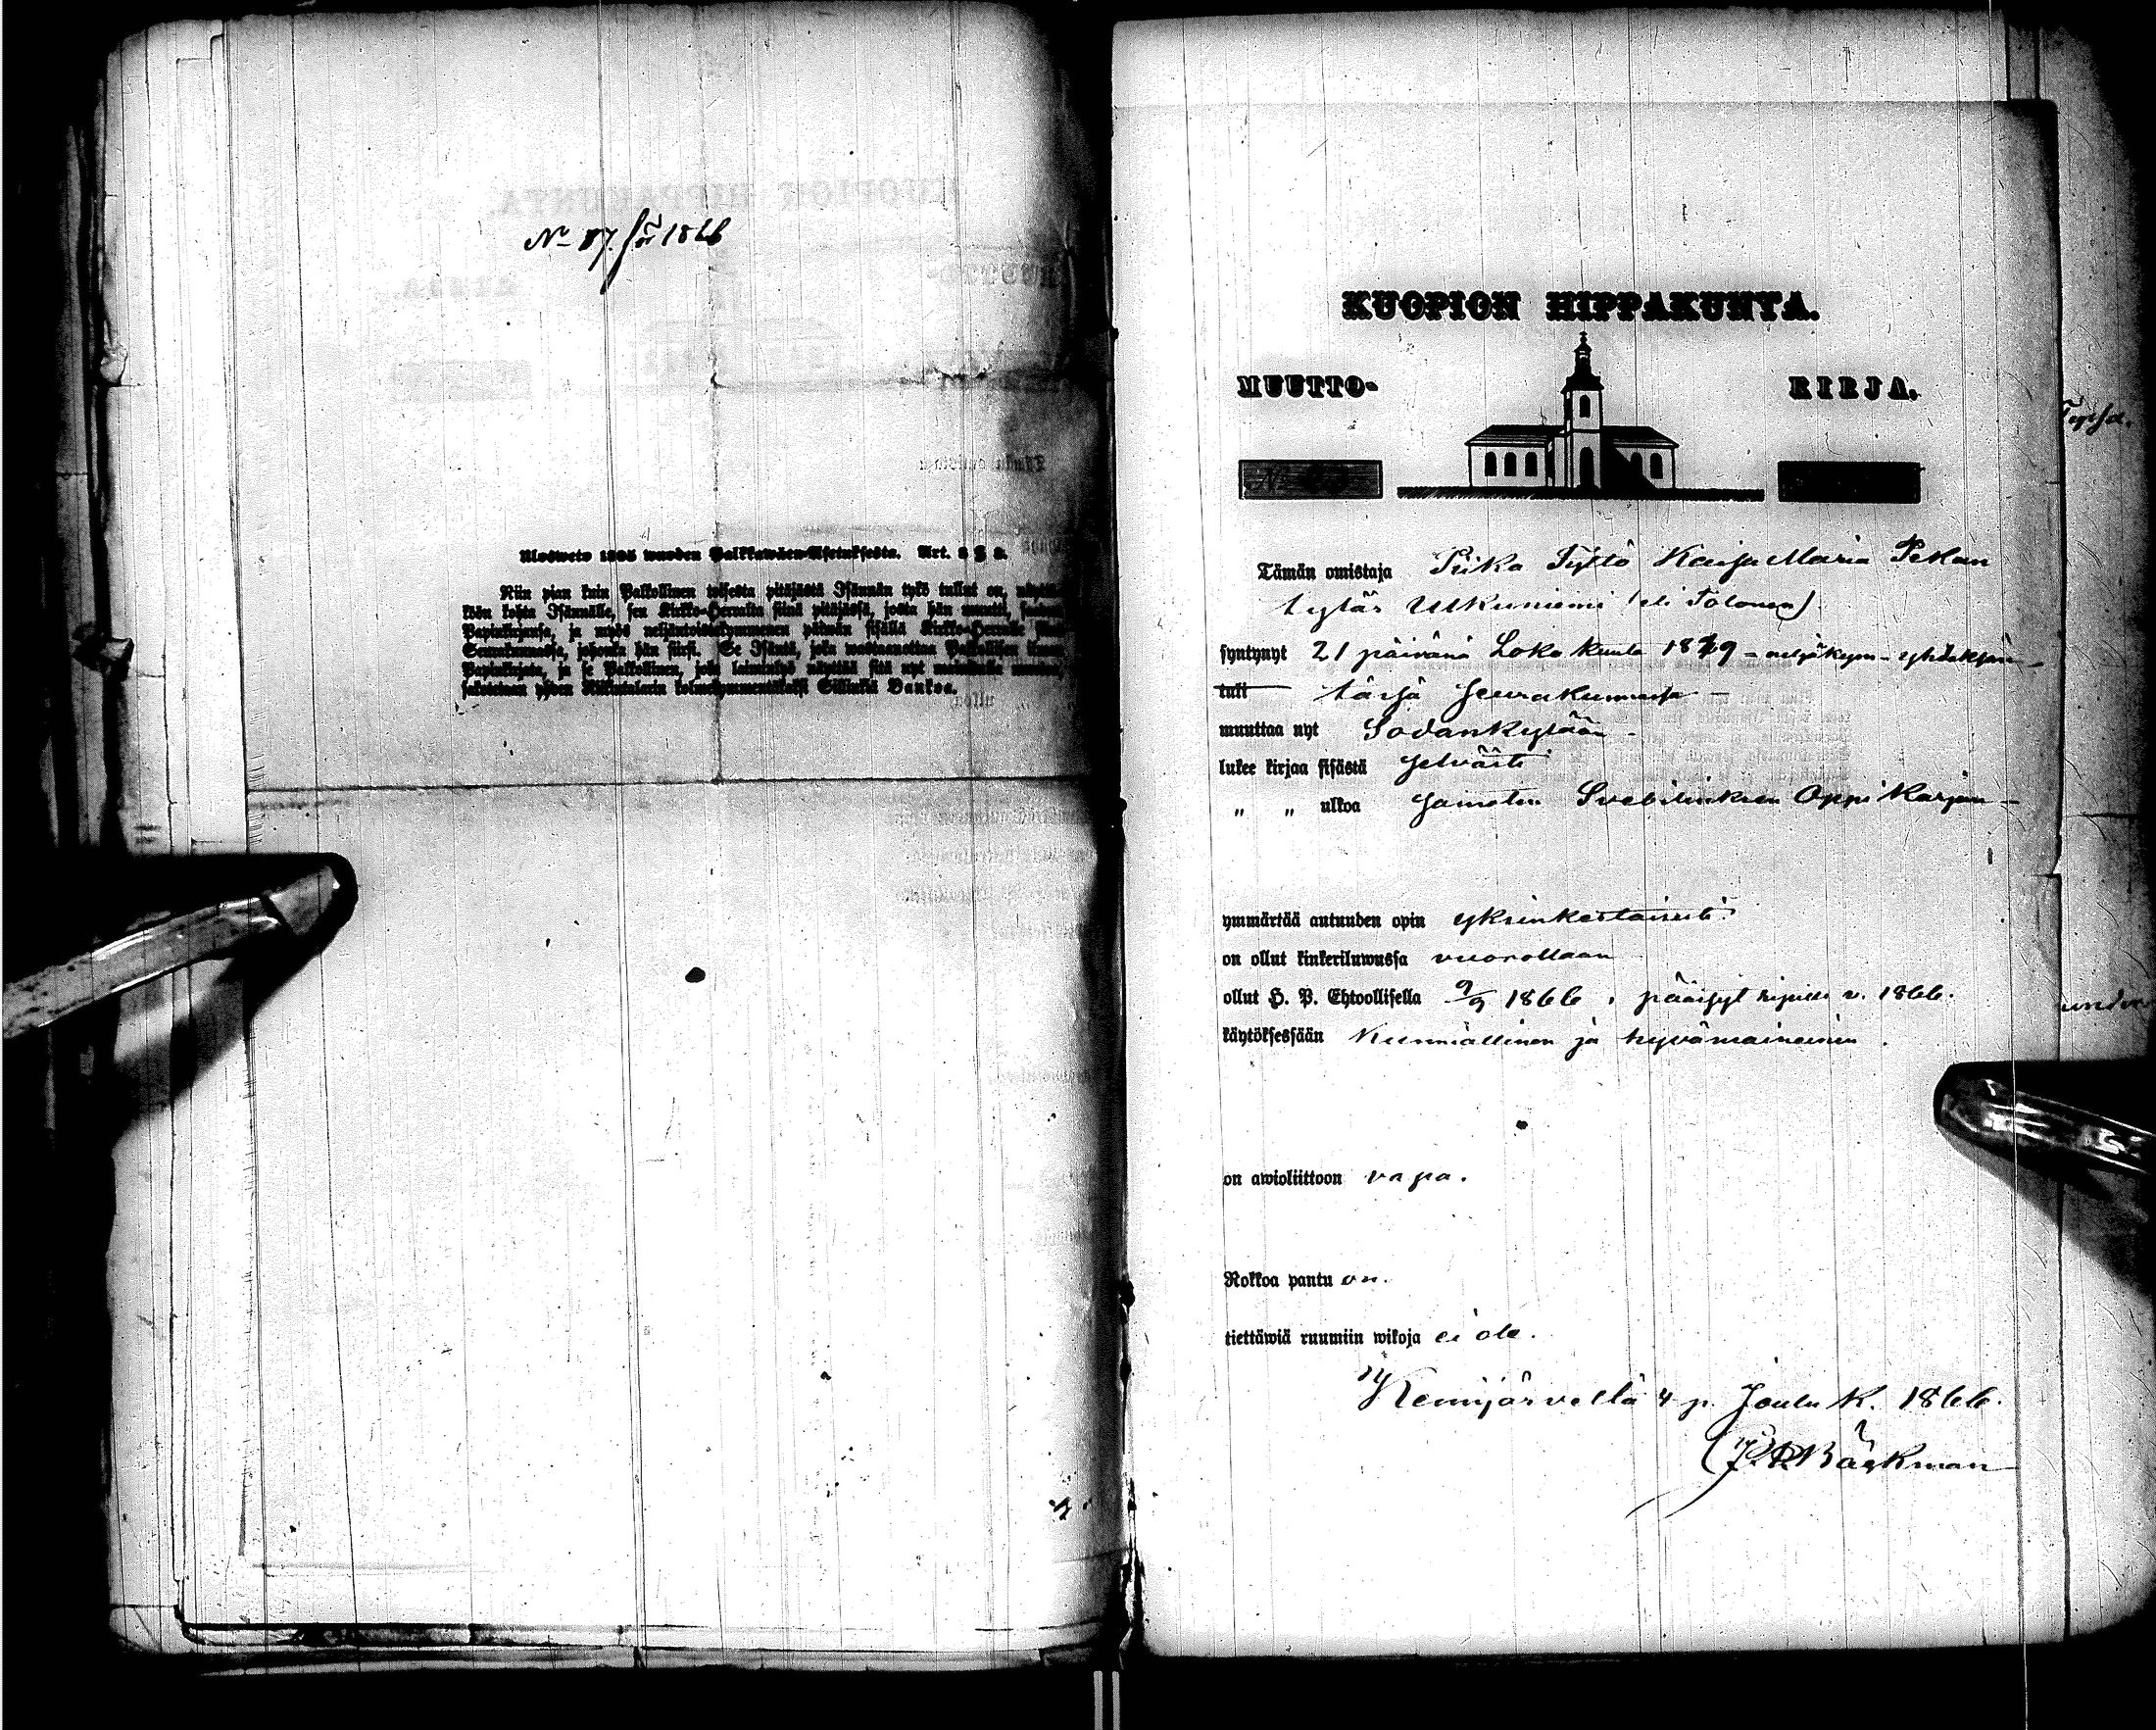 No 87. för 1866
Ulosweto 1805 wuoden Palkkawäen-Asetuksesta. Art. 2 § 3.
Niin pian kuin Palkollinen toisesta pitäjästä Isännän tykö tullut on, näyttä-
köön kohta Isännälle, sen Kirkko-Herralta siinä pitäjässä, josta hän muutti, saadun
Papinkirjansa, ja myös neljäntoistakymmenen päiwän sisällä Kirkko-Herralle
Seurakunnassa, johonka hän siirsi. Se Isäntä, joka wastaanottaa Palkollisen ilman
Papinkirjata, ja se Palkollinen, joka laiminlyö näyttää sitä nyt
sakotetaan yhden Riikintalarin kolmekymmentäkaksi Sillinkiä Bankoa.
KUOPION HIPPAKUNTA.
MUUTTO- KIRJA.
Tämän omistaja Piika Tyttö Kaisa Maria Pekan
tytär Ulkuniemi (eli Tolonen)
syntynyt 21 päivänä Loka kuuta 1849 - neljäkym - yhdeksän -
tuli tässä seurakunnassa -
muuttaa nyt Sodankylään -
lukee kirjaa sisästä selvästi
„ „ ulkoa samoten Svebiliuksen Oppi Kirjan -
ymmärtää autuuden opin yksinkertaisesti.
on ollut kinkeriluwussa vuorollaan
ollut H. P. Ehtoollisella 9/9 1866, päässyt ripille v. 1866.
käytöksessään Kunniallinen ja hyvämaineinen.
on awioliittoon vapa.
Rokkoa pantu on.
tiettäwiä ruumiin wikoja ei ole.
Kemijärvellä 4 p. Joulu K. 1866.
Bäckman